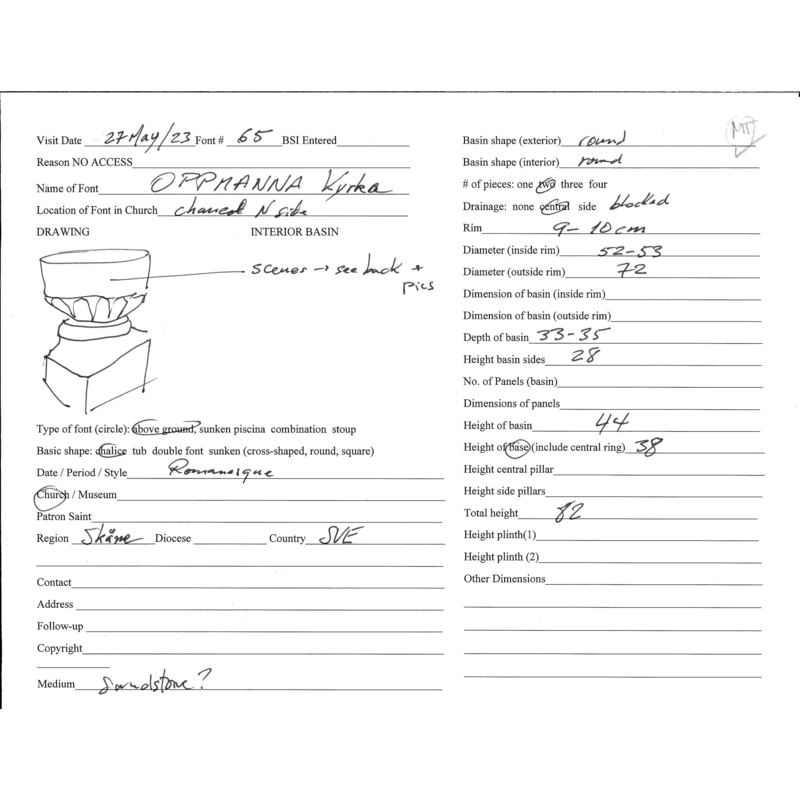 Visit Date 27 May/23 Font # 65 BSI Entered
Reason NO ACCESS
Name of Font OPPMANNA Kyrka
Location of Font in Church chancel N side
DRAWING INTERIOR BASIN
scenes → see back +
pics
Type of font (circle): above ground, sunken piscina combination stoup
Basic shape: chalice tub double font sunken (cross-shaped, round, square)
Date / Period / Style Romanesque
Church / Museum
Patron Saint
Region Skåne Diocese Country SVE
Contact
Address
Follow-up
Copyright
Medium Sandstone?
MT
Basin shape (exterior) round
Basin shape (interior) round
# of pieces: one two three four
Drainage: none central side blocked
Rim 9-10cm
Diameter (inside rim) 52-53
Diameter (outside rim) 72
Dimension of basin (inside rim)
Dimension of basin (outside rim)
Depth of basin 33-35
Height basin sides 28
No. of Panels (basin)
Dimensions of panels
Height of basin 44
Height of base (include central ring) 38
Height central pillar
Height side pillars
Total height 82
Height plinth(1)
Height plinth (2)
Other Dimensions